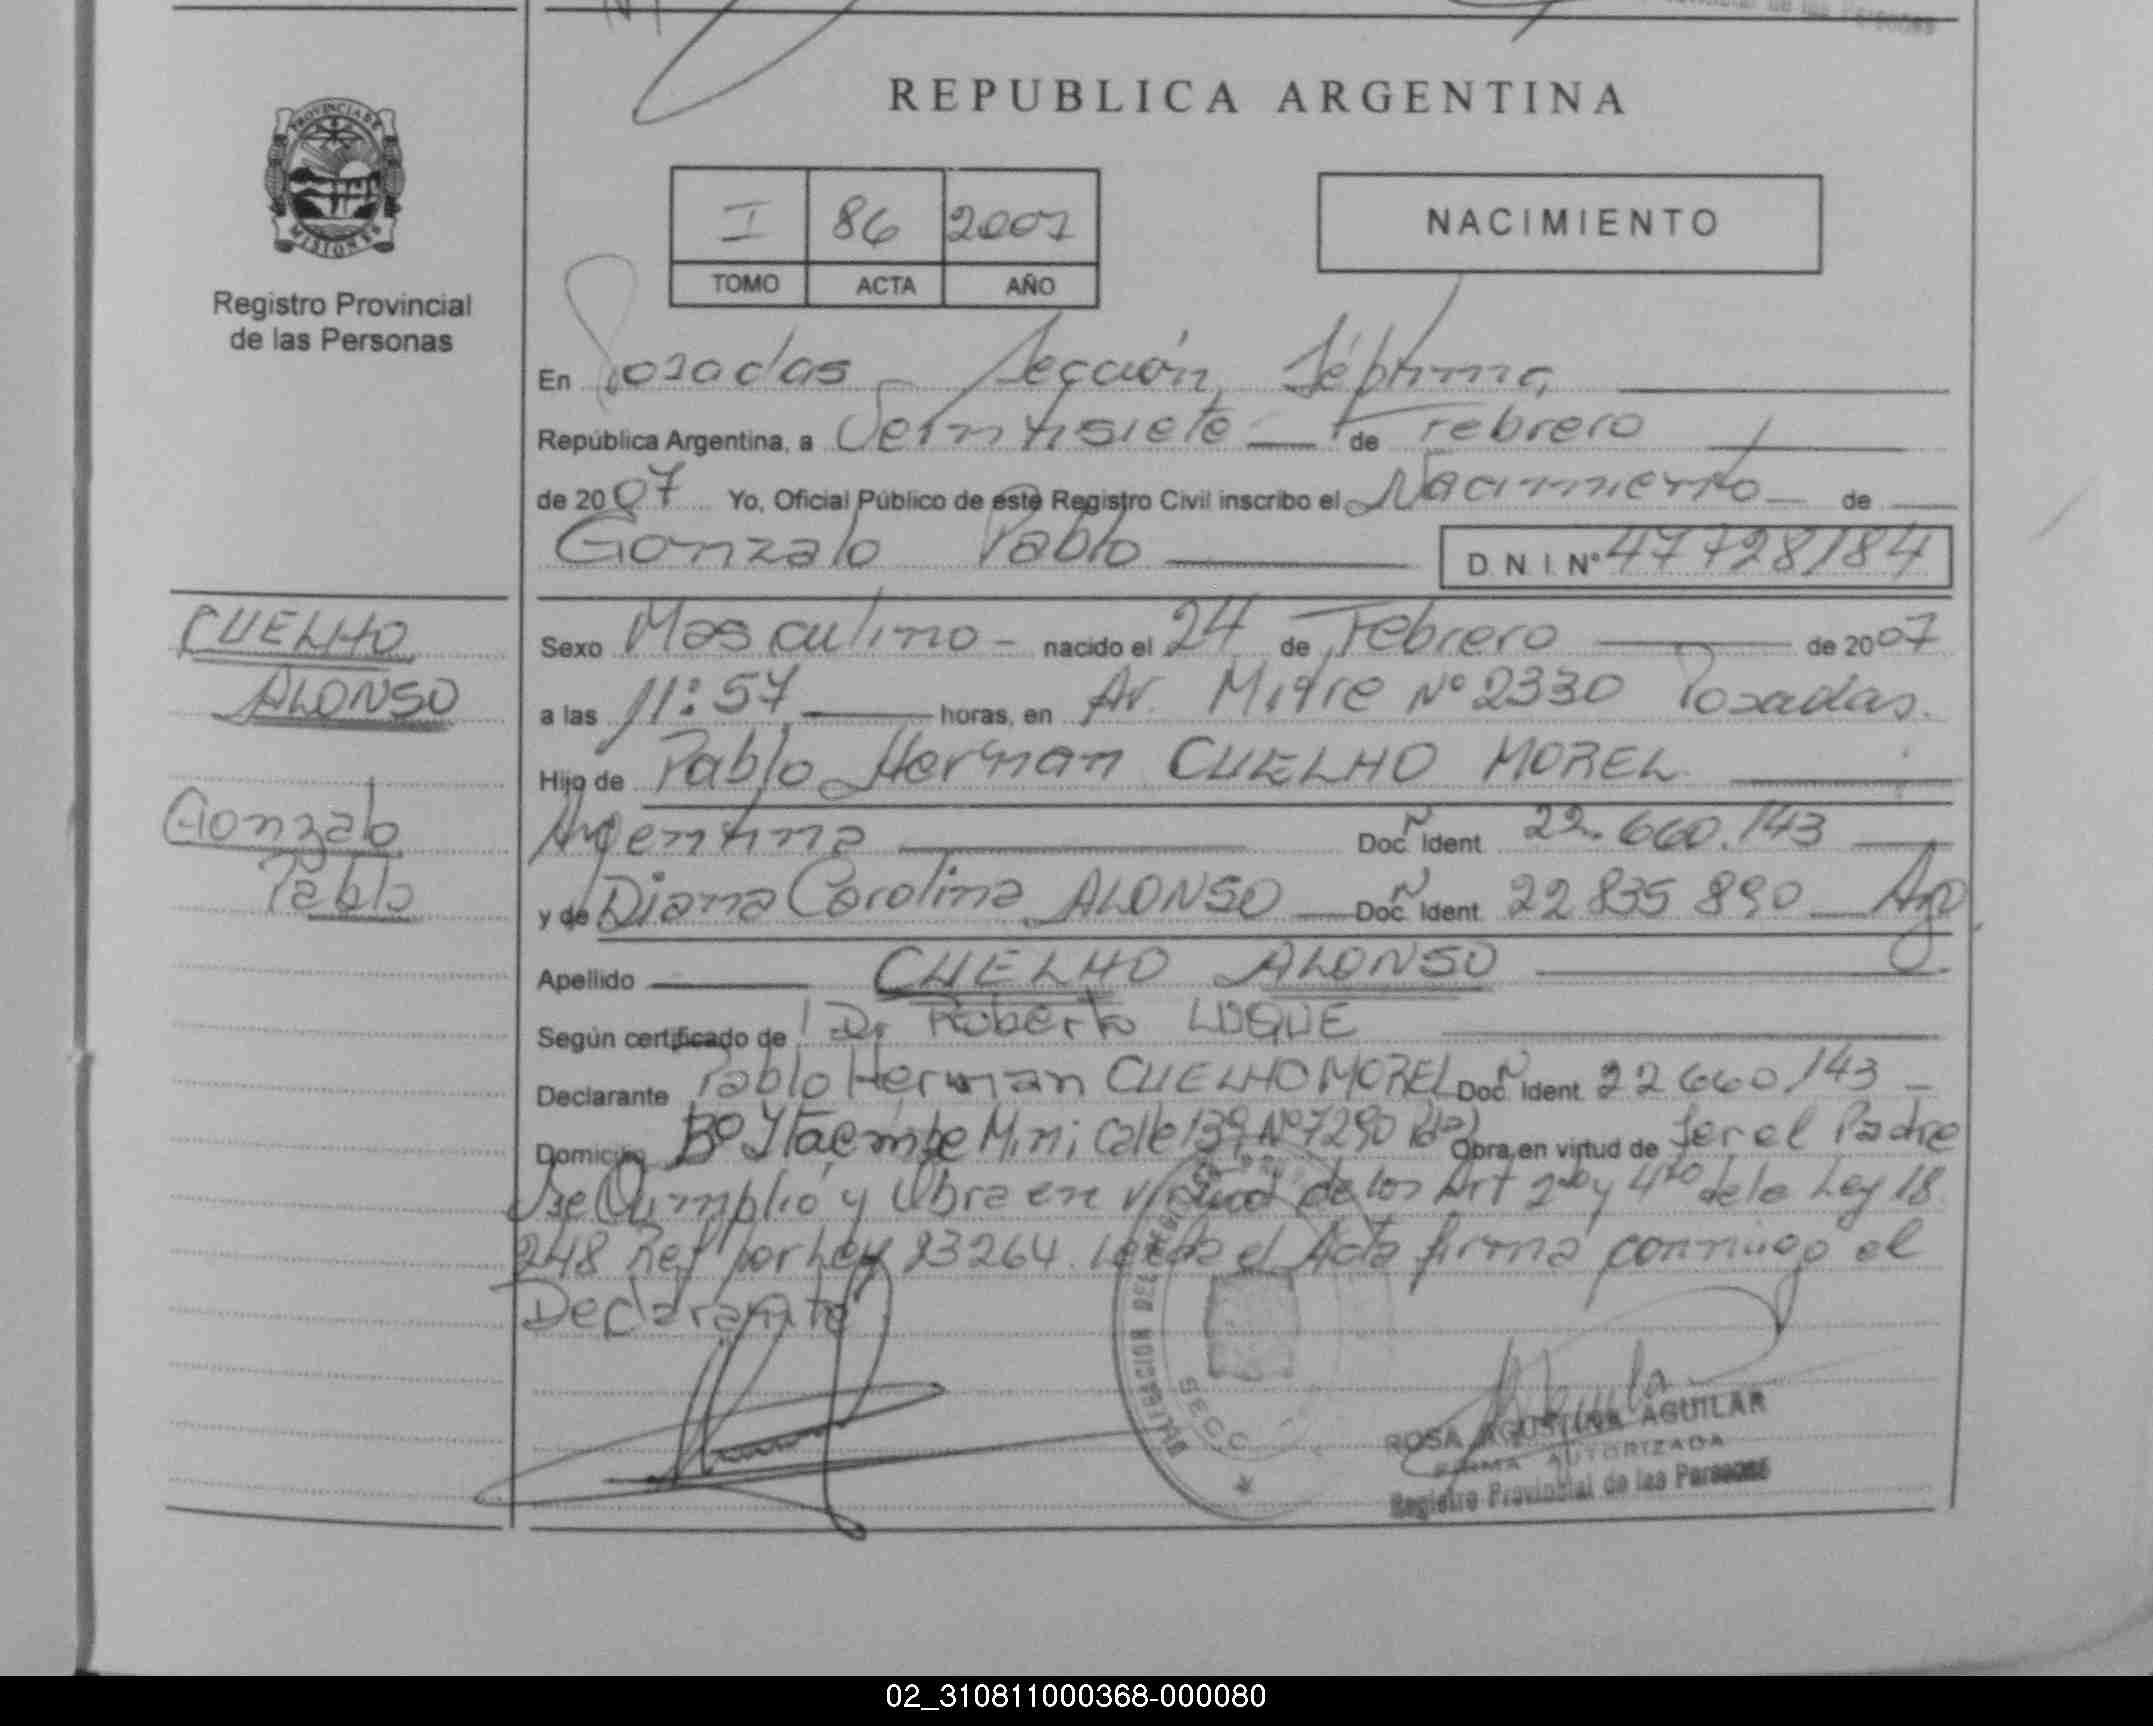 REPUBLICA ARGENTINA
PROVINCIA DE
MISIONES
Registro Provincial
de las Personas
I 86 2007
TOMO ACTA AÑO
NACIMIENTO
En Posadas - Sección Séptima
República Argentina, a Veintisiete de Febrero
de 2007 Yo, Oficial Público de este Registro Civil inscribo el Nacimiento de
Gonzalo Pablo D.N.I. Nº 47728184
CUELHO
ALONSO
Gonzalo
Pablo
Sexo Masculino - nacido el 24 de Febrero de 2007
a las 11:57 horas, en Av. Mitre Nº 2330 Posadas.
Hijo de Pablo Hernan CUELHO MOREL
Argentina Doc. Ident 22.660.143
y de Diana Carolina ALONSO Doc. Ident. 22 835 890 Arg
Apellido CUELHO ALONSO
Según certificado de Dr Roberto LUQUE
Declarante Pablo Hernan CUELHO MOREL Doc. Ident. 22 660 143
Domicilio Bº Ytaembe Mini Calle 139 Nº 7290 Pdas Obra en virtud de Ser el Padre
Se Cumplió y Obra en virtud de los Art 2do y 4to de la Ley 18
248 Ref por Ley 23264. Leída el Acta firma conmigo el
Declarante
SECC
ROSA AGUSTINA AGUILAR
FIRMA AUTORIZADA
Registro Provincial de las Personas
02_310811000368-000080